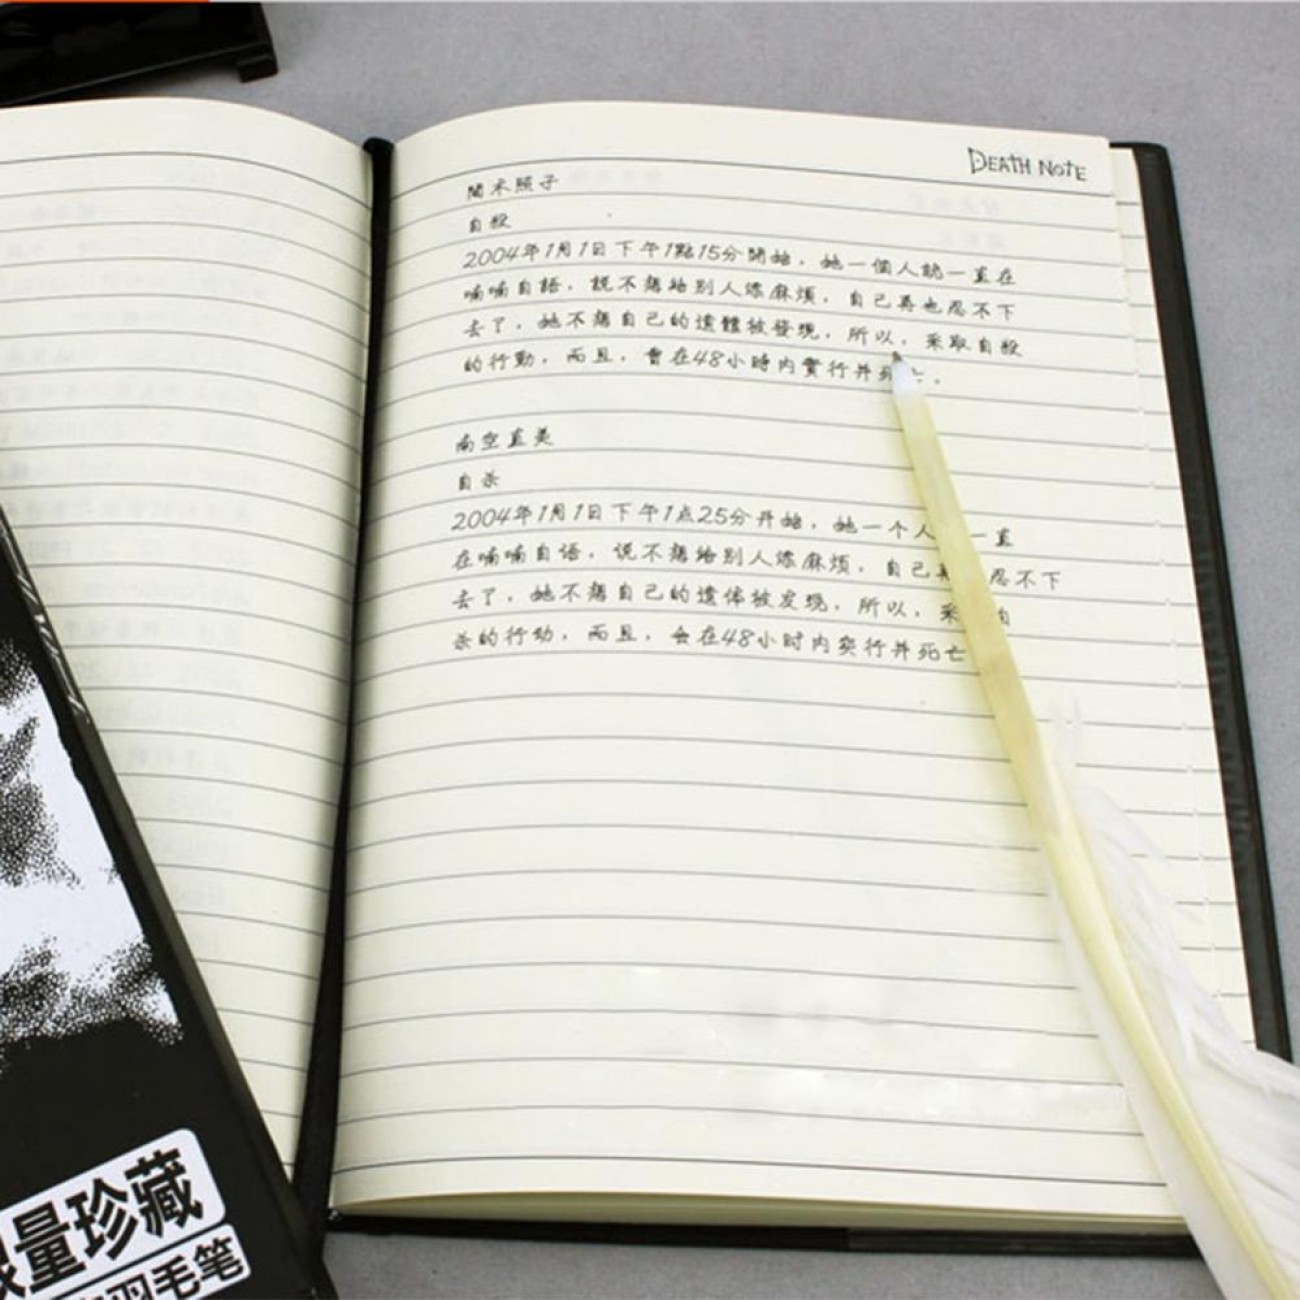 DEATH NOTE
間木照子
自殺
2004年1月1日下午1點15分開始，她一個人說一直在
喃喃自語，說不想給別人添麻煩，自己再也忍不下
去了，她不想自己的遺體被發現，所以，采取自殺
的行動，而且，會在48小時內實行并死亡.
南空直美
自杀
2004年1月1日下午1点25分开始，她一个人 一直
在喃喃自语，说不想给别人添麻烦，自己再 忍不下
去了，她不想自己的遗体被发现，所以，采 自
杀的行动，而且，会在48小时内实行并死亡
量珍藏
羽毛笔